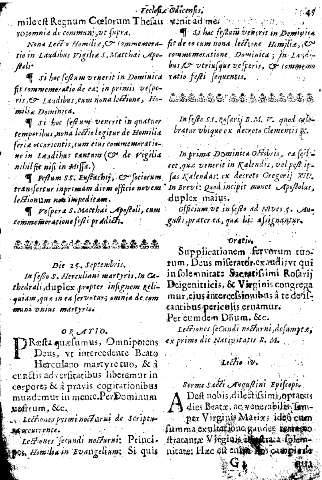 Ecclesiæ Vticensis. 45
mile est Regnum Cœlorum Thesau
ro, omnia de communi, vt supra.
Nona Lectio Homiliæ, & commemora-
tio in Laudibus Vigiliæ S. Matthæi Apo-
stoli.
¶ Si hoc festum venerit in Dominica
fit commemoratio de ea; in primis vespe-
ris, & Laudibus, cum nona lectione, Ho-
milia Dominicæ.
¶ Si hoc festum venerit in quatuor
temporibus, nona lectio legitur de Homilia
feriæ occurrentis, cum eius commemoratio-
ne in Laudibus tantum (& de Vigilia
nihil fit nisi in Missa.)
¶ Festum SS. Eustachij, & sociorum
transfertur in primam diem officio novem
lectionum non impeditam.
¶ Vespera S. Matthæi Apostoli, cum
commemoratione festi prædicti.
Die 25. Septembris.
In festo S. Herculani martyris, In Ca-
thedrali, duplex, propter insignem reli-
quiam, quæ in ea servatur; omnia de com
muni vnius martyris.
ORATIO.
PRæsta quæsumus, Omnipotens
Deus, vt intercedente Beato
Herculano martyre tuo, & à
cunctis adversitatibus liberemur in
corpore, & à pravis cogitationibus
mundemur in mente. Per Dominum
nostrum, &c.
Lectiones primi nocturni de Scriptu-
ra occurrente.
Lectiones secundi nocturni; Princi-
pes, Homilia in Evangelium; Si quis
venit ad me
¶ Si hoc festum venerit in Dominica
fit de eo cum nona lectione Homiliæ, &
commemoratione Dominicæ; in Laudi-
bus, & vtriusque vesperis, & commemo
ratio festi sequentis.
In festo SS. Rosarij B. M. V. quod cele-
bratur vbique ex decreto Clementis
In prima Dominica Octobris, ea scili-
cet, quæ venit in Kalendis, vel post ip-
sas Kalendas: ex decreto Gregorij XIII.
In Brevi: Quod incipit monet Apostolus,
duplex maius.
Officium vt in festo ad nives 5. Au-
gusti, præter ea, quæ hic assignantur.
Oratio,
Supplicationem servorum tuo-
rum, Deus miserator exaudi, vt qui
in solemnitate Sacratissimi Rosarij
Deigenitricis, & Virginis congrega
mur, eius intercessionibus à te de instantibus
periculis eruamur.
Per eumdem Dñum, &c.
Lectiones secundi nocturni, desumptæ,
ex prima die Nativitatis B. M.
Lectio iv.
Sermo Sancti Augustini Episcopi.
ADest nobis, dilectissimi, optatus
dies Beatæ, ac venerabilis sem-
per Virginis Mariæ: ideo cum
summa exultatione gaudeat terra
Virginis illustrata solem-
nitate: Hæc est enim flos campi, de
G 3 qua